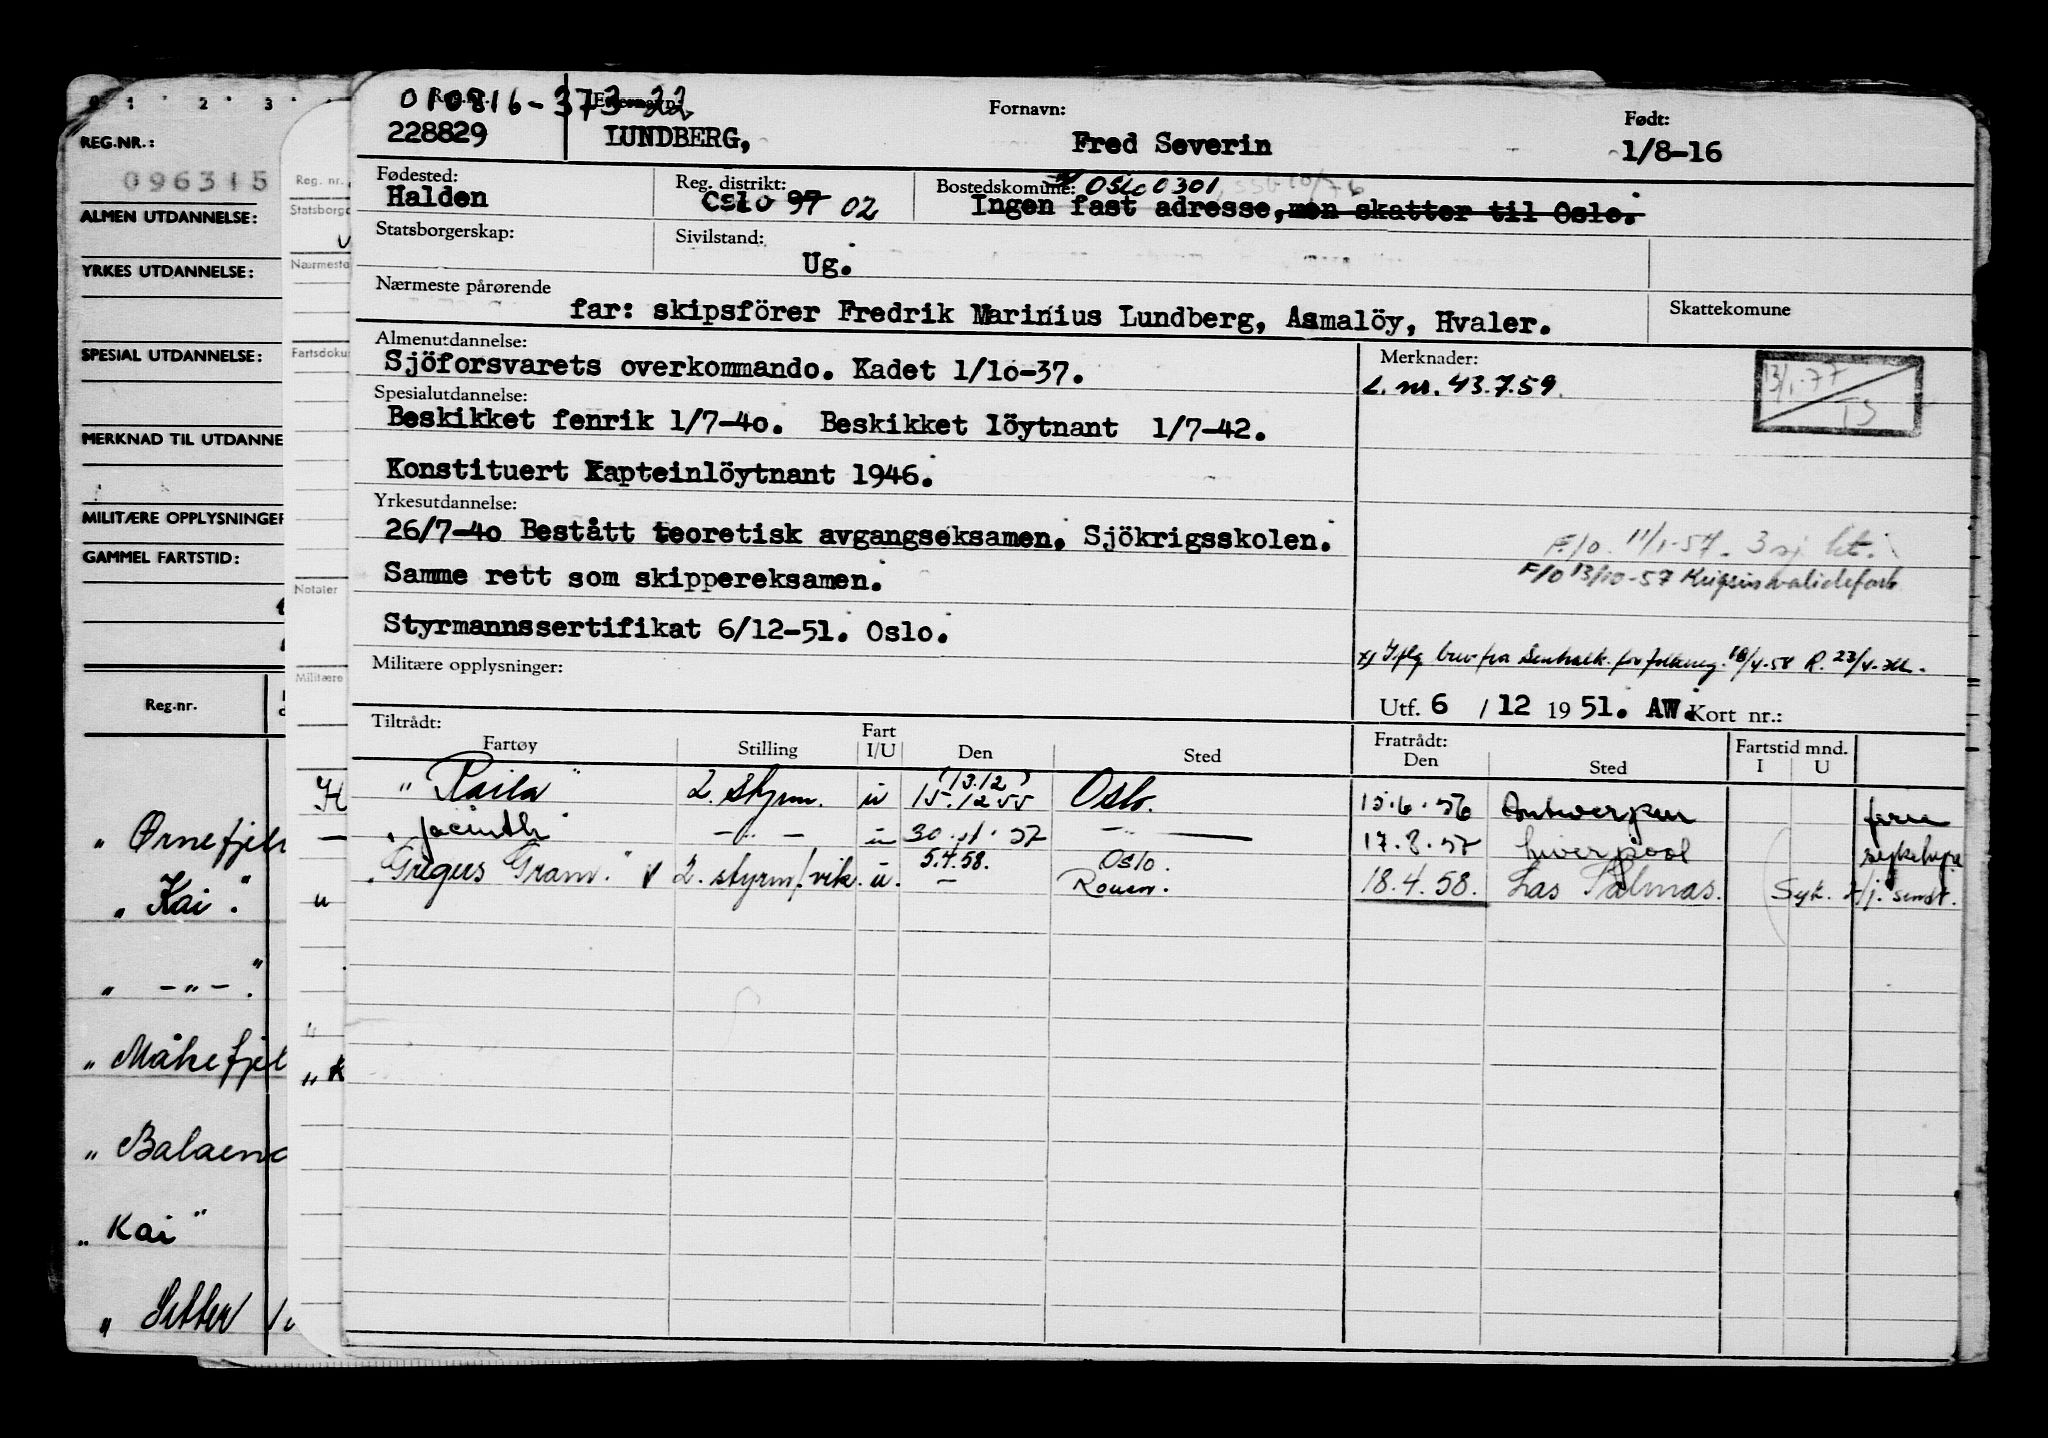 0 1 2 3
REG.NR.:
096315
ALMEN UTDANNELSE:
YRKES UTDANNELSE:
SPESIAL UTDANNELSE:
MERKNAD TIL UTDANNE
MILITÆRE OPPLYSNINGER
GAMMEL FARTSTID:
Reg.nr.
" Ørnefjel
" Kai".
" -"-".
" Måkefjel
" Balaena
"Kai"
" Sitter
Reg. nr.
Statsborge
Nærmeste
Fartsdoku
Notater
Militære
010816-373 22
228829
LUNDBERG,
Fornavn:
Fred Severin
Født:
1/8-16
Fødested:
Halden
Reg. distrikt:
Oslo 97 02
Bostedskomune: Oslo 0301
Ingen fast adresse, men skatter til Oslo.
Statsborgerskap:
Sivilstand:
Ug.
Nærmeste pårørende
far: skipsförer Fredrik Marinius Lundberg, Asmalöy, Hvaler.
Skattekomune
Almenutdannelse:
Sjöforsvarets overkommando. Kadet 1/10-37.
Spesialutdannelse:
Beskikket fenrik 1/7-40. Beskikket löytnant 1/7-42.
Konstituert Kapteinlöytnant 1946.
Yrkesutdannelse:
26/7-40 Bestått teoretisk avgangseksamen. Sjökrigsskolen.
Samme rett som skippereksamen.
Styrmannssertifikat 6/12-51. Oslo.
Militære opplysninger:
Merknader:
L. nr. 43.7.59.
13/1-77
TS
F/o. 11/1-57. 3 sj kt.
F/O 13/10-57 Krigsinvalidefork
x) Iflg brev fra Sentralk. for folkereg. 18/4-58 R. 23/4-
Utf. 6 / 12 1951. AW. Kort nr.:
Tiltrådt:
Fartøy
Stilling
Fart
I/U
Den
Sted
Fratrådt:
Den
Sted
Fartstid mnd.
I U
" Raila" 2. styrm. u (13.12) 15.12 55 Oslo. 15.6.56 Antwerpen ferie
" Jacinth" -"- u 30.11.57 -"- 17.8.57 Liverpool
"Gregers Gram." 2. styrm/vik. u. 5.4.58. - Oslo. Rouen. 18.4.58. Las Palmas. Syk. t/j. sendt.